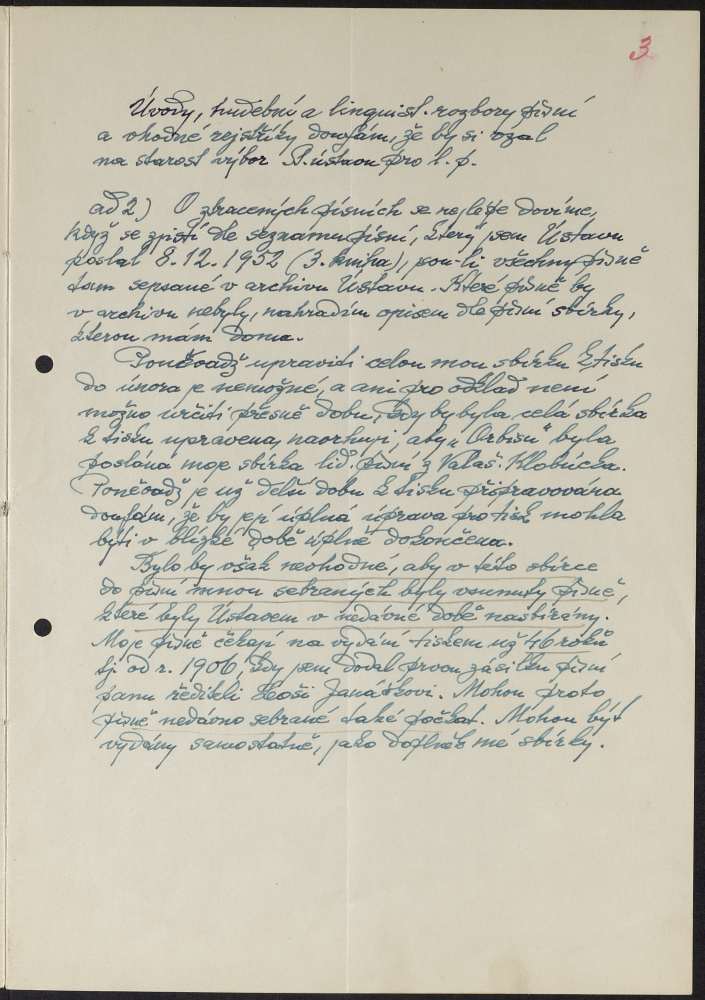 3
Úvody, hudební a linguist. rozbory písní
a vhodné rejstříky doufám, že by si vzal
na starost výbor P. ústavu pro l. p.
ad 2) O ztracených písních se nejlépe dovíme,
když se zjistí dle seznamu písní, který jsem Ústavu
poslal 8.12.1952 (3. kniha), jsou-li všechny písně
tam sepsané v archivu Ústavu. Které písně by
v archivu nebyly, nahradím opisem dle písní sbírky,
kterou mám doma.
Poněvadž upraviti celou mou sbírku k tisku
do února je nemožné, a ani pro odklad není
možno určiti přesně dobu, kdy by byla celá sbírka
k tisku upravena, navrhuji, aby „Orbisu" byla
poslána moje sbírka lid. písní z Valaš. Klobúcka.
Poněvadž je už delší dobu k tisku připravována
doufám, že by její úplná úprava pro tisk mohla
býti v blízké době úplně dokončena.
Bylo by však nevhodné, aby v této sbírce
do písní mnou sebraných byly vsunuty písně,
které byly Ústavem v nedávné době nasbírány.
Moje písně čekají na vydání tiskem už 46 roků
tj od r. 1906, kdy jsem dodal prvou zásilku písní
panu řediteli Leoši Janáčkovi. Mohou proto
písně nedávno sebrané také počkat. Mohou být
vydány samostatně, jako doplněk mé sbírky.